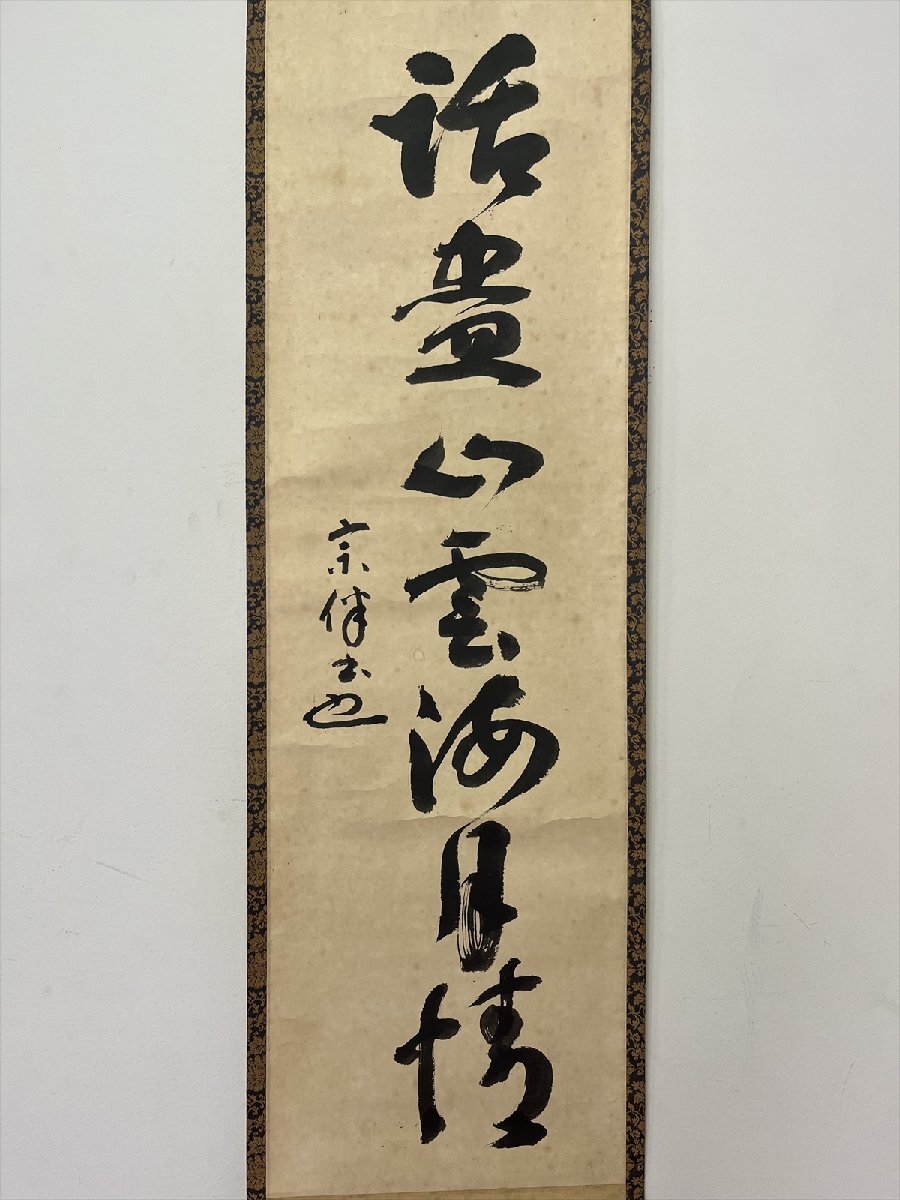 話盡山雲海月情
宗伴書之